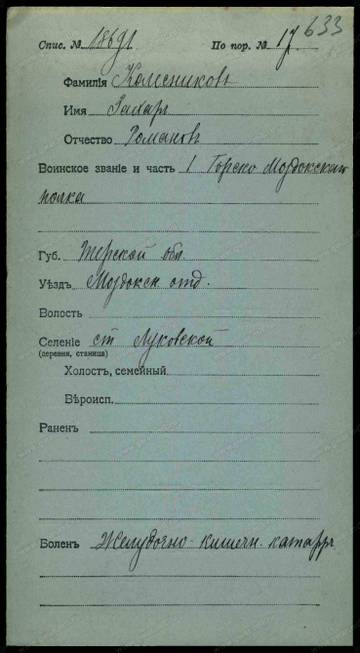 633
Спис. № 18691 По пор. № 17
Фамилія Колесниковъ
Имя Захаръ
Отчество Романовъ
Воинское званіе и часть 1 Горско Моздокскаго
полка
Губ. Терской обл.
Уѣздъ Моздокск отд.
Волость
Селеніе ст Луковской
(деревня, станица)
Холостъ, семейный
Вѣроисп.
Раненъ
Боленъ Желудочно-кишечн. катарръ